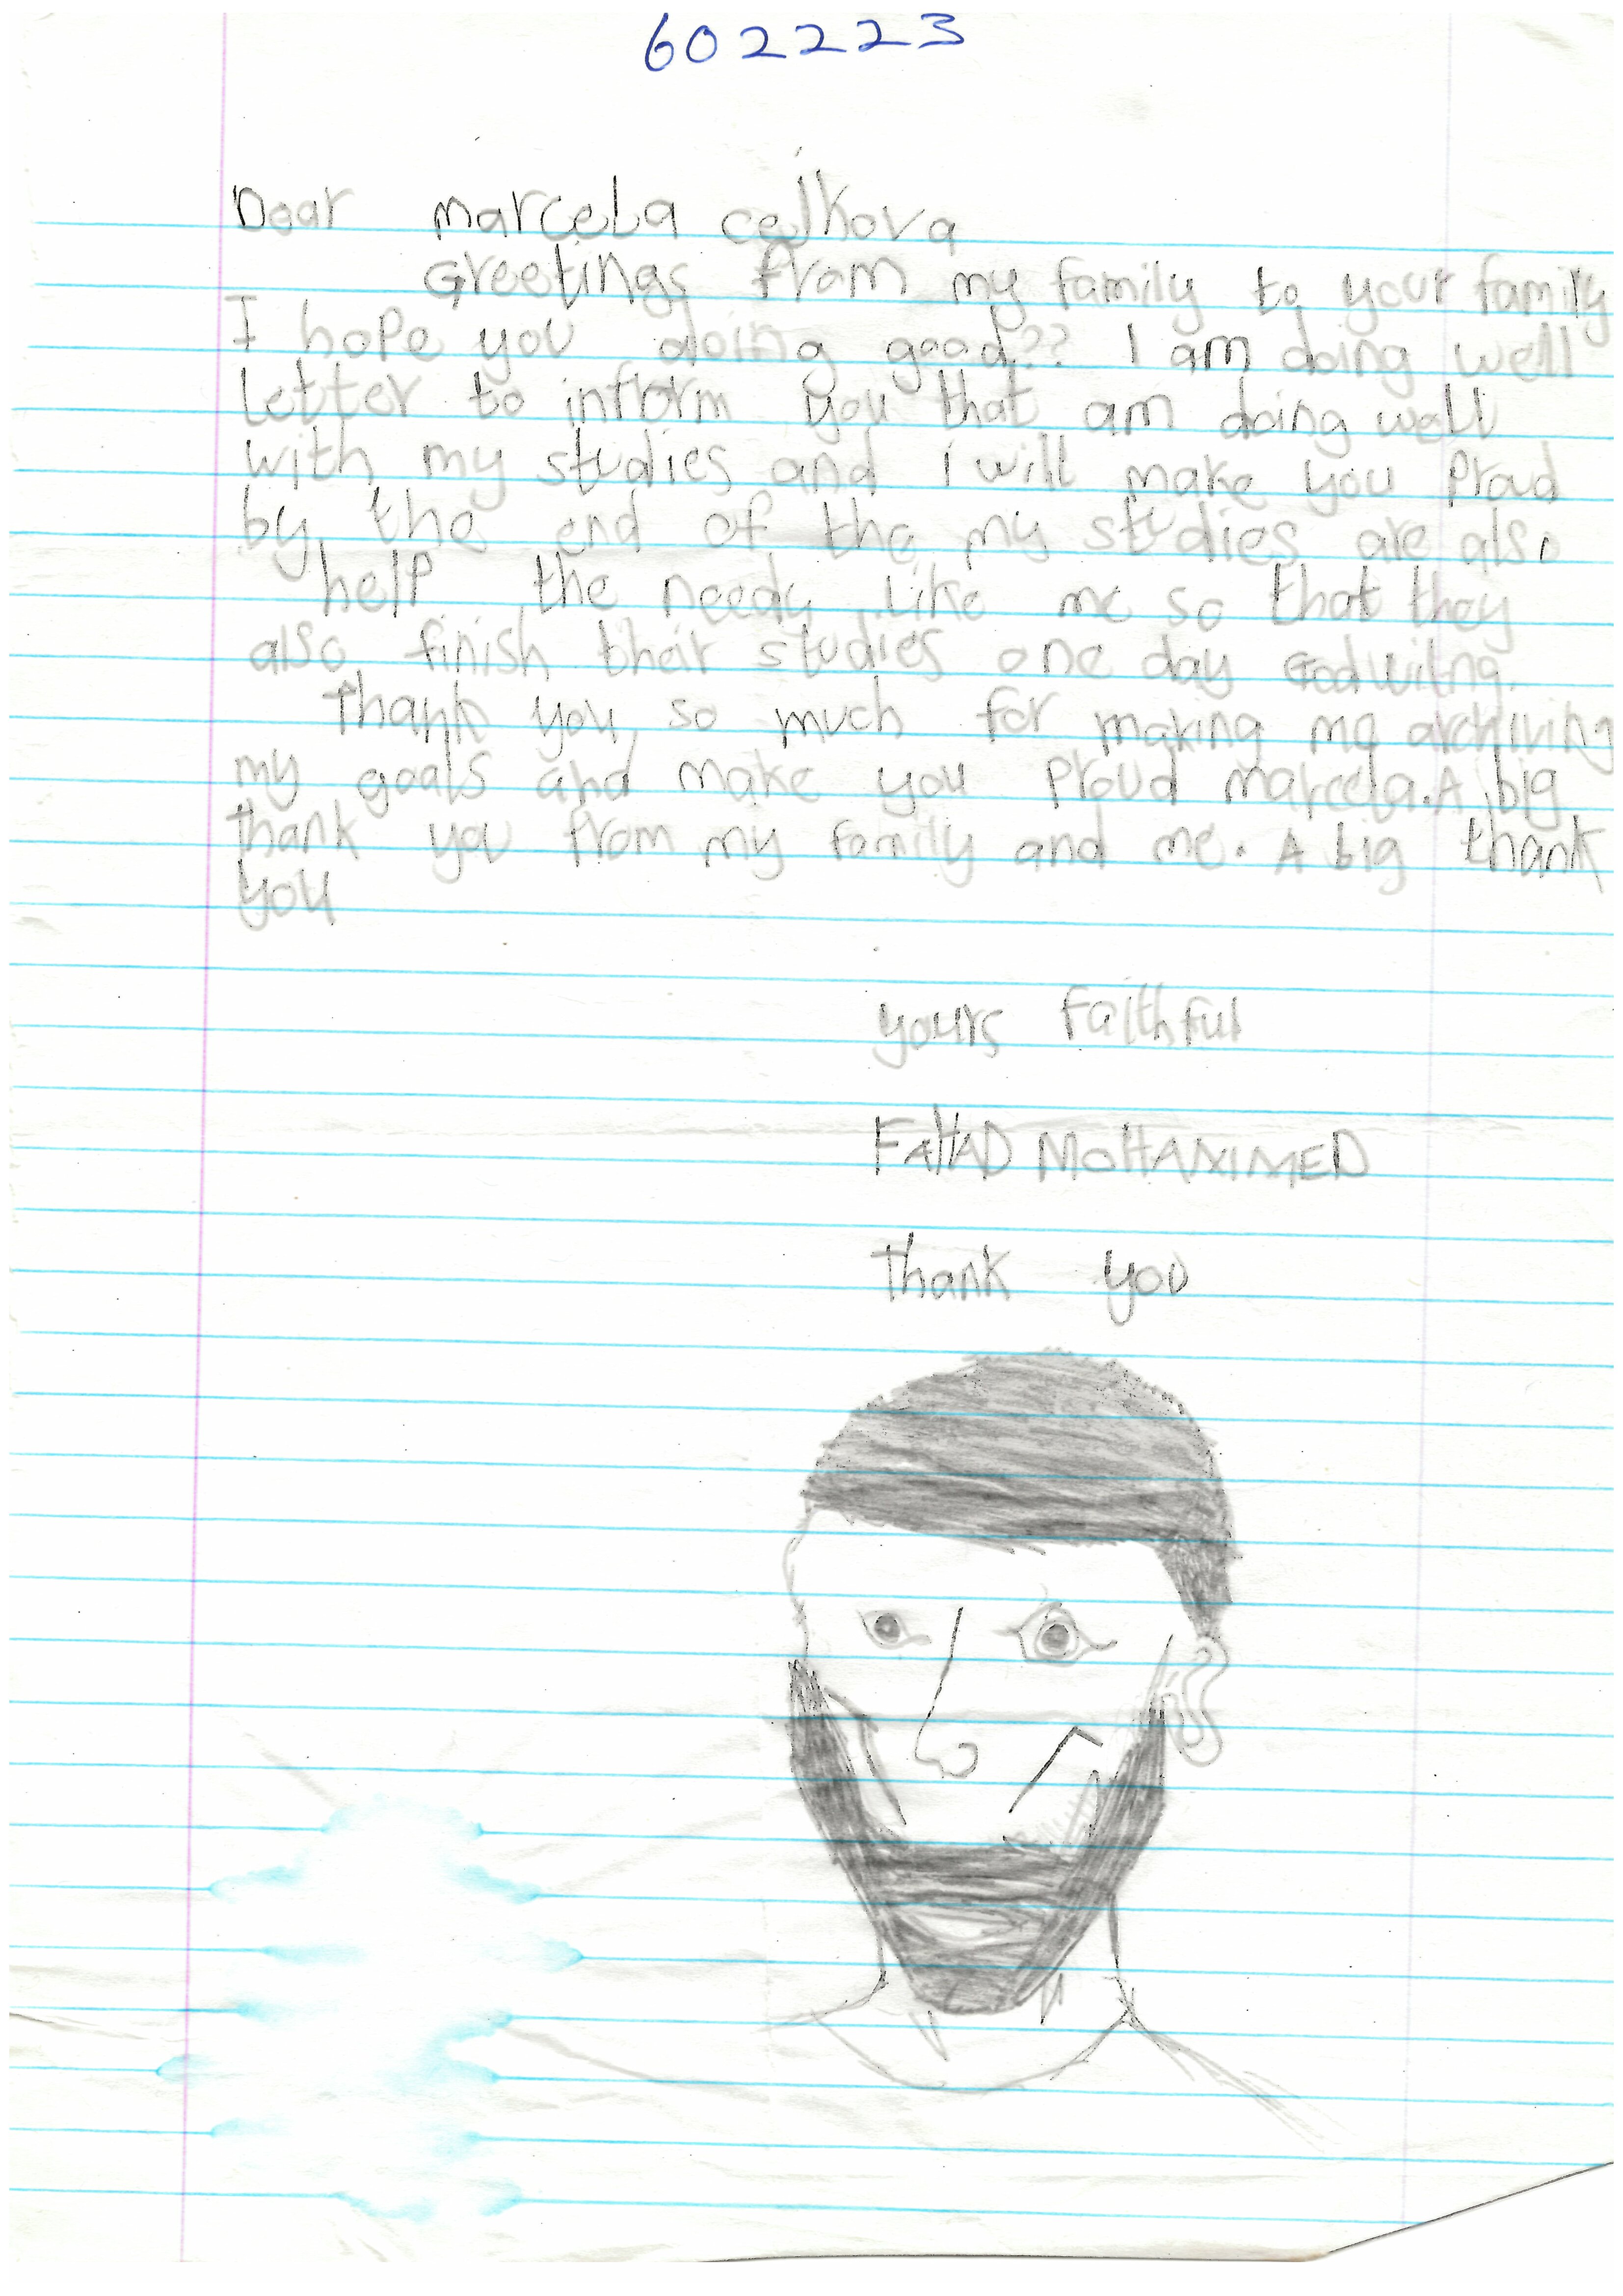 602223
Dear marcela cejkova
Greetings from my family to your family
I hope you doing good?? I am doing well
Letter to inform you that am doing well
with my studies and i will make you Proud
by the end of the my studies are also
help the needy Like me so that they
also finish their studies one day Godwilng.
Thank you so much for making me archiving
my goals and make you Proud marcela. A big
thank you from my family and me. A big thank
you
yours Faithful
FAHAD MOHAMMED
Thank you